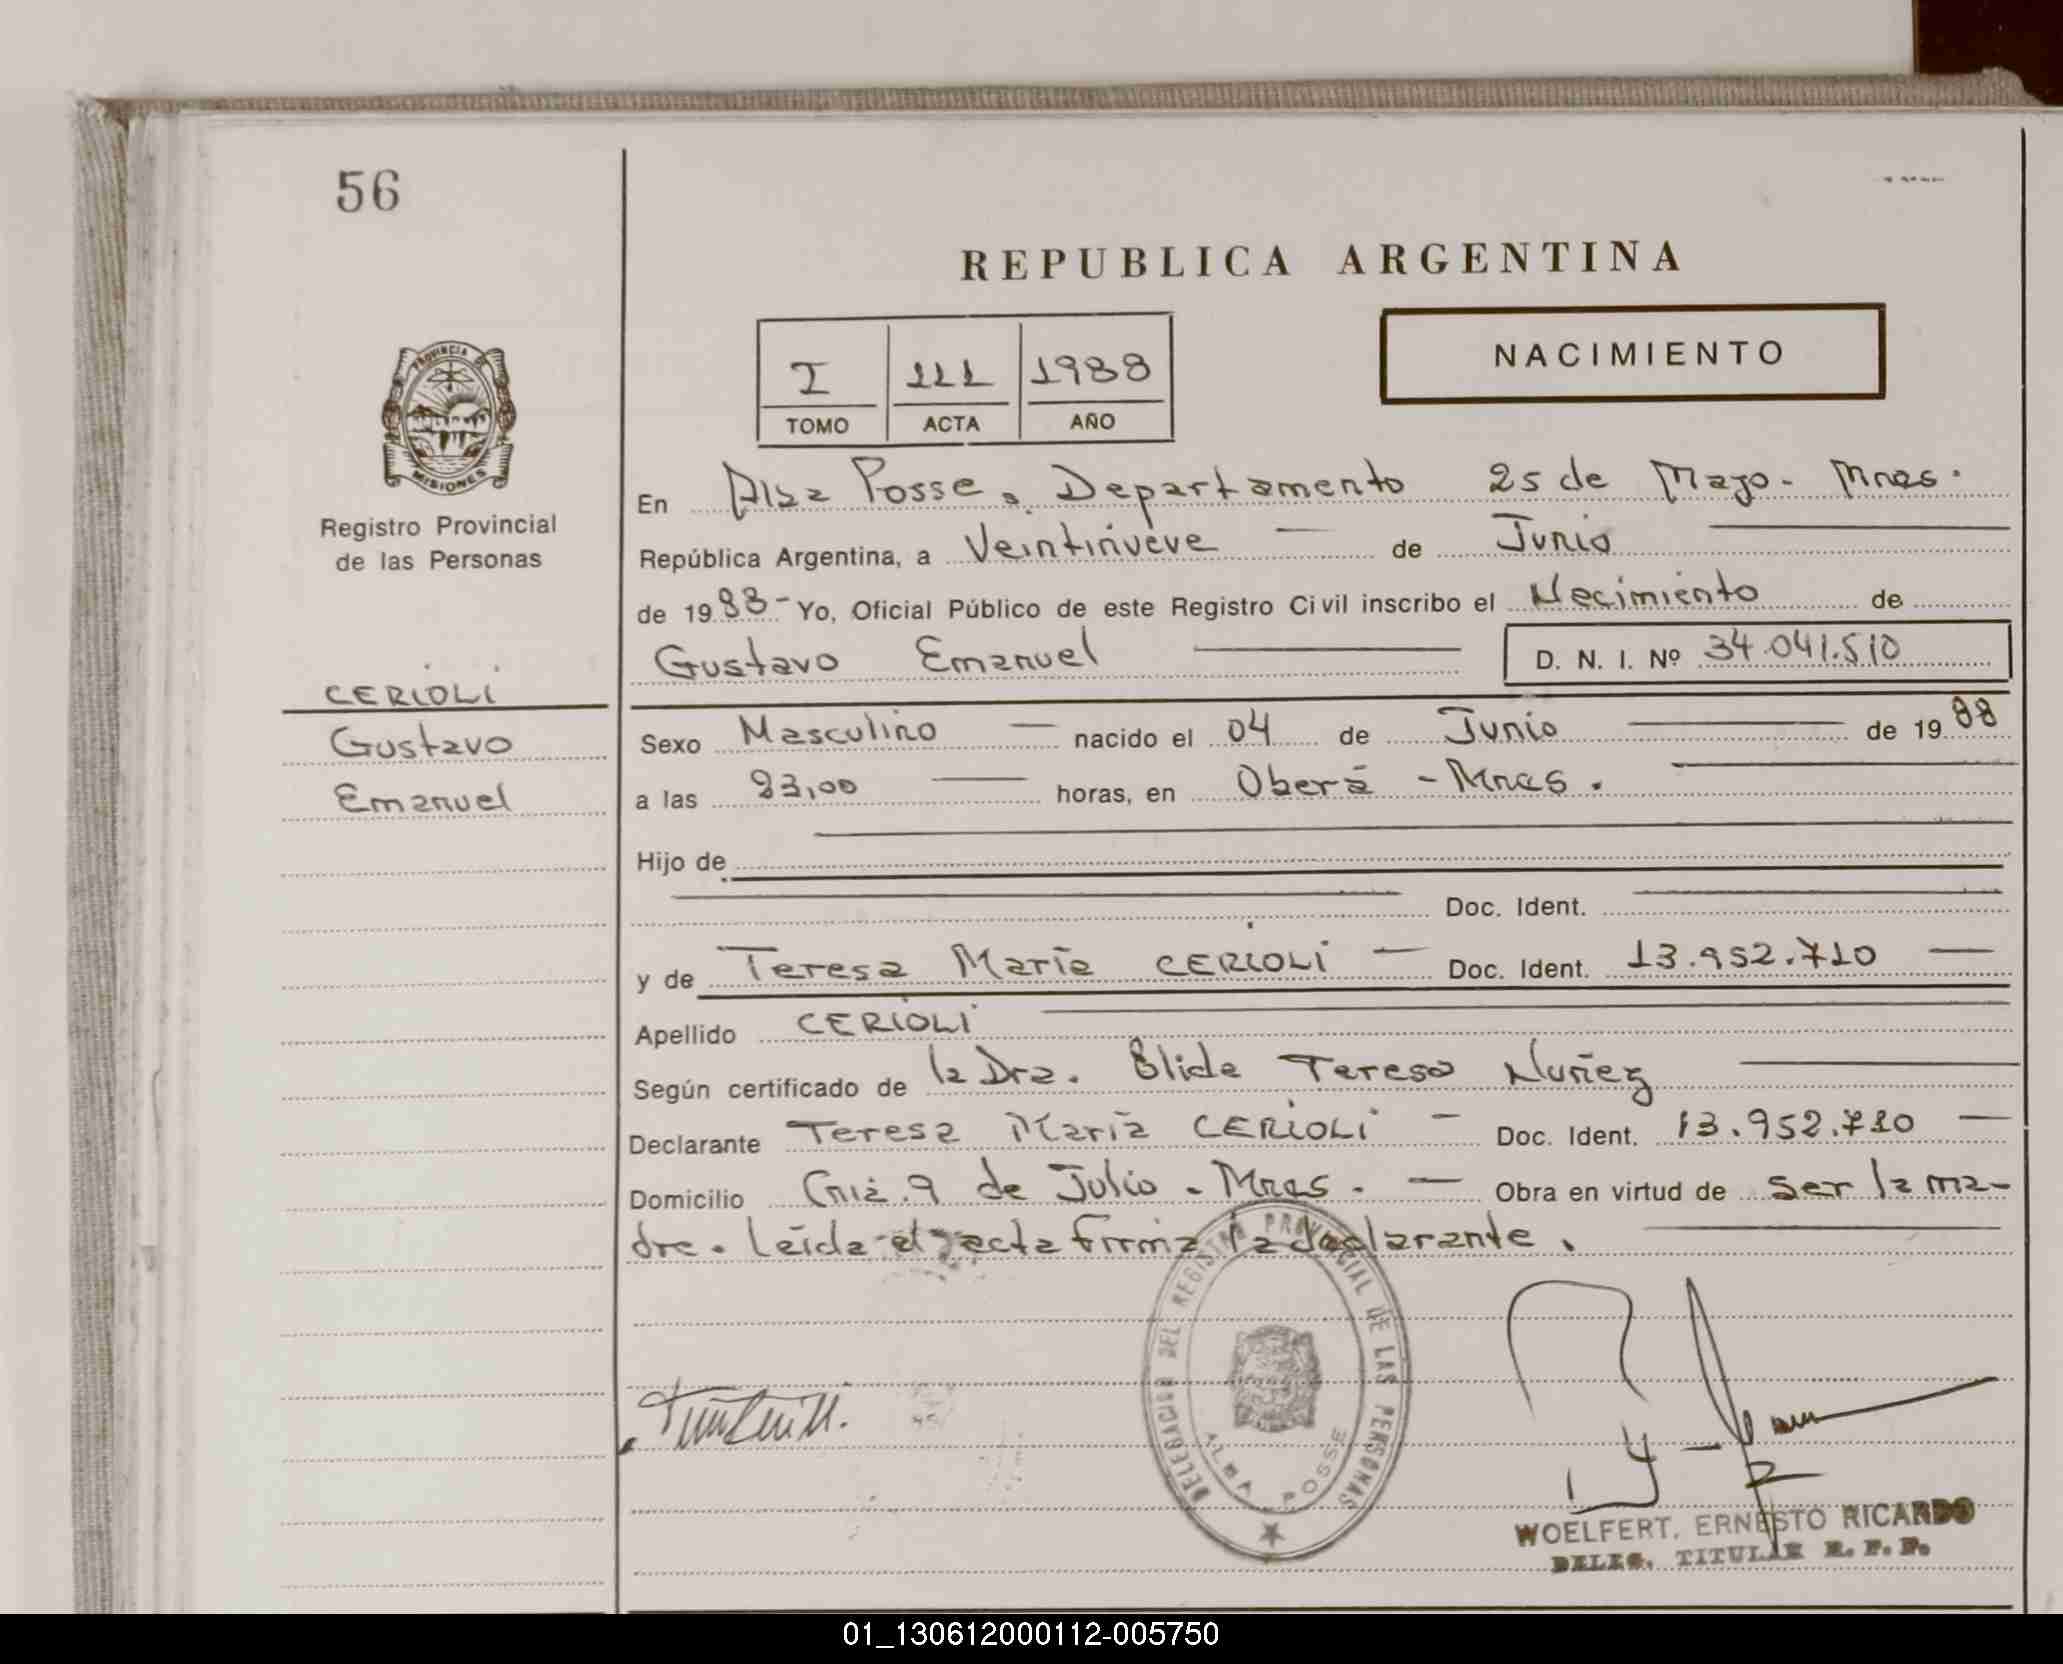 56
REPUBLICA ARGENTINA
NACIMIENTO
I 111 1988
TOMO ACTA AÑO
PROVINCIA DE
MISIONES
Registro Provincial
de las Personas
En Alba Posse, Departamento 25 de Mayo - Mnes.
República Argentina, a Veintinueve — de Junio
de 1988 - Yo, Oficial Público de este Registro Civil inscribo el Nacimiento de
Gustavo Emanuel D. N. I. Nº 34.041.510
CERIOLI
Gustavo
Emanuel
Sexo Masculino — nacido el 04 de Junio — de 1988
a las 23,00 — horas, en Oberá - Mnes.
Hijo de
Doc. Ident.
y de Teresa María CERIOLI — Doc. Ident. 13.952.710 —
Apellido CERIOLI
Según certificado de la Dra. Elida Teresa Nuñez
Declarante Teresa María CERIOLI — Doc. Ident. 13.952.710 —
Domicilio 9 de Julio - Mnes. — Obra en virtud de ser la ma-
dre. Leída el acta firma la declarante.
DELEGACION DEL REGISTRO PROVINCIAL DE LAS PERSONAS
ALBA POSSE
WOELFERT, ERNESTO RICARDO
DELEG. TITULAR R. P. P.
01_130612000112-005750